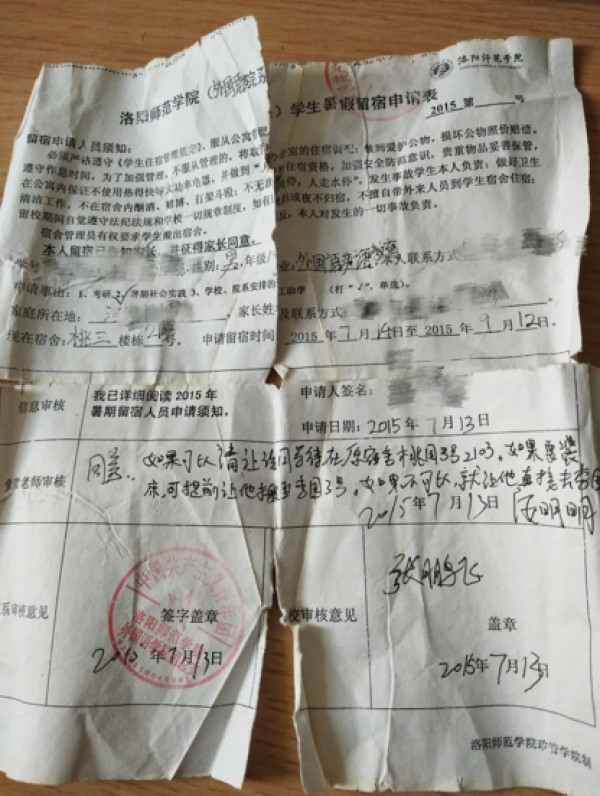 洛阳师范学院
洛阳师范学院（外国语学院）学生暑假留宿申请表
2015 第 号
留宿申请人员须知：
必须严格遵守《学生住宿管理规定》，服从公寓管
室的住宿调配；做到爱护公物，损坏公物照价赔偿。
遵守作息时间，为了加强管理，不服从管理的，将取
住宿资格。加强安全防范意识，贵重物品妥善保管。
在公寓内保证不使用热得快等大功率电器，并做到“人
走电停，人走水停”。发生事故学生本人负责；做好卫生
清洁工作。不在宿舍内酗酒、赌博、打架斗殴；不无
或夜不归宿，不擅自带外来人员到学生宿舍住宿；
留校期间自觉遵守法纪法规和学校一切规章制度，如有
反，本人对发生的一切事故负责。
宿舍管理员有权要求学生搬出宿舍。
本人留宿已告知家长，并征得家长同意。
性别：男 年级/
业：外国语学院 本人联系方式
申请事由：1、考研 2、暑期社会实践 3、学校、院系安排的
工助学 （打“√”，单选）。
家庭所在地： 家长姓
及联系方式
现在宿舍：桃三 楼栋 号。 申请留宿时间
2015 年 7 月 14 日至 2015 年 9 月 12 日。
信息审核
我已详细阅读 2015 年
暑期留宿人员申请须知。
申请人签名：
申请日期：2015 年 7 月 13 日
老师审核
同意。如果可以请让该同学待在原宿舍桃园3号2103。如果要装
床，可提前让他搬至李园3号。如果不可以，就让他直接去李园
2015年7月13日
系审核意见
中国共产主义青年团
洛阳师范学院
签字盖章
2015 年 7 月 13 日
校审核意见
张鹏飞
盖章
2015 年 7 月 13 日
洛阳师范学院政管学院制